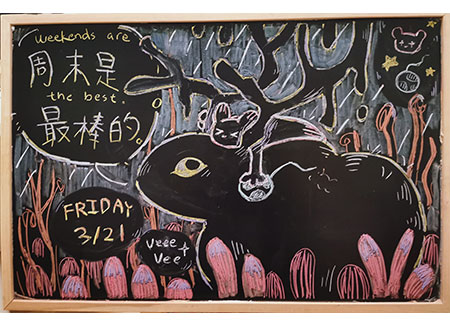 weekends are
周末是
the best.
最棒的。
FRIDAY
3/21
veee +
vee